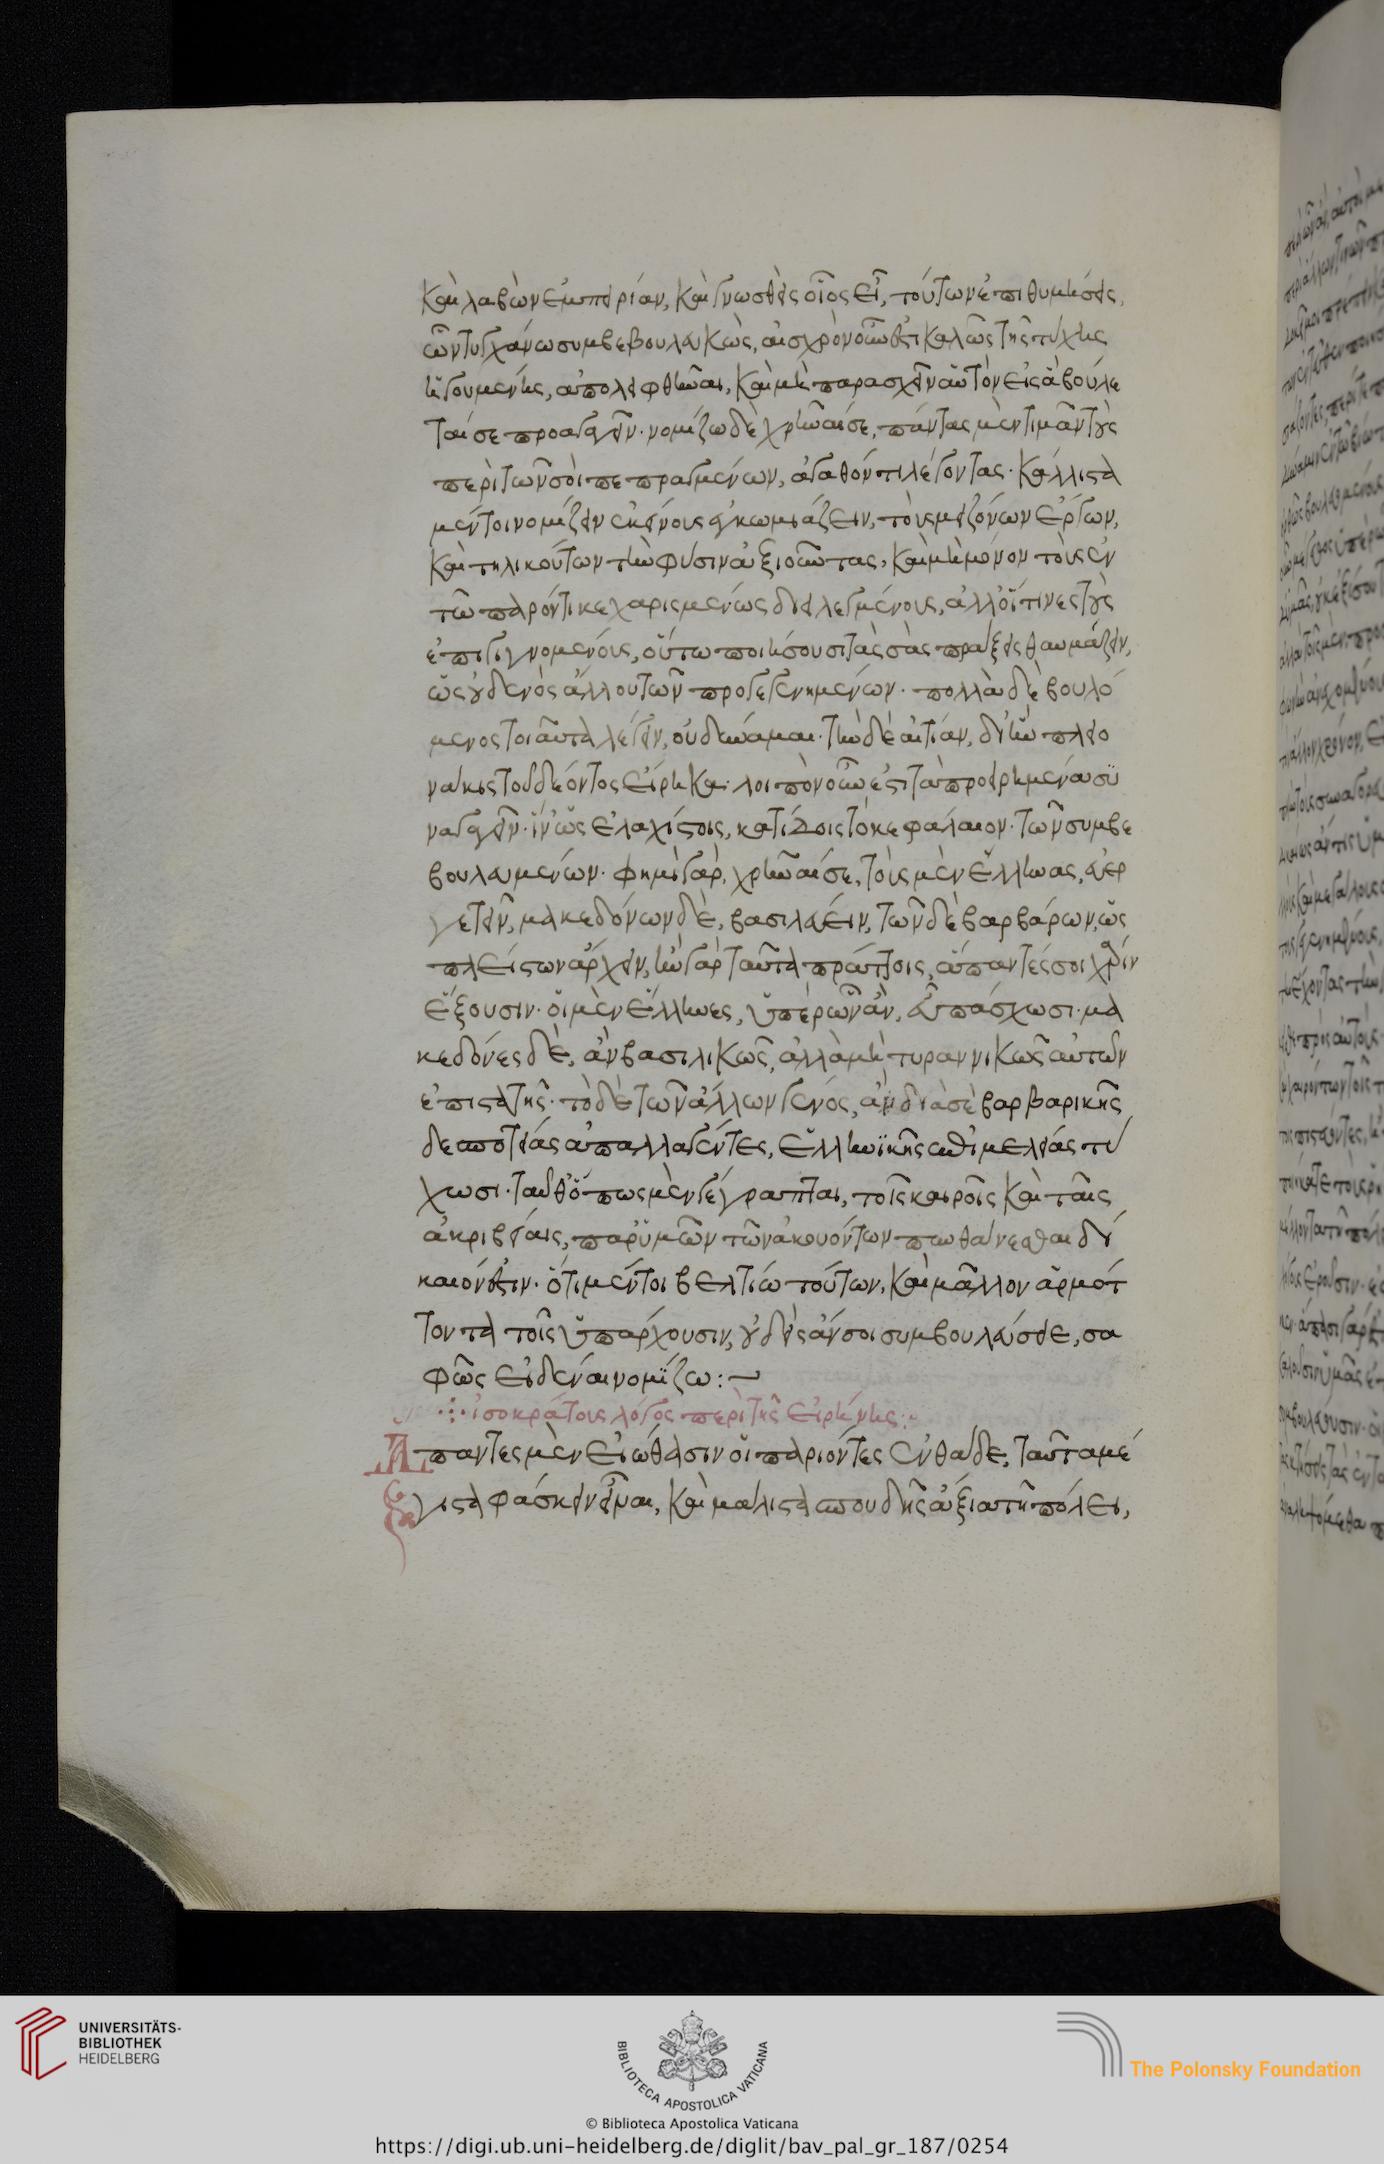 καὶ λαβὼν ἐμπειρίαν, καὶ γνωσθεὶς οἷος εἶ, τούτων ἐπιθυμήσεις,
ὧν τυγχάνω συμβεβουλευκὼς, αἰσχρὸν οὖν ἐστι καλῶς τῆς τύχης
ἡγουμένης, ἀπολειφθῆναι, καὶ μὴ παρασχεῖν αὑτὸν εἰς ἃ βούλε
ταί σε προαγαγεῖν· νομίζω δὲ χρῆναί σε, πάντας μὲν τιμᾶν τοὺς
περὶ τῶν σοὶ πεπραγμένων, ἀγαθόν τι λέγοντας· κάλλιστα
μέντοι νομίζειν ἐκείνους ἐγκωμιάζειν, τοὺς μειζόνων ἔργων,
καὶ τηλικούτων τὴν φύσιν ἀξιοῦντας, καὶ μὴ μόνον τοὺς ἐν
τῷ παρόντι κεχαρισμένως διειλεγμένους, ἀλλ' οἵτινες τοὺς
ἐπιγιγνομένους, οὕτω ποιήσουσι τὰς σὰς πράξεις θαυμάζειν,
ὡς οὐδενὸς ἄλλου τῶν προγεγενημένων· πολλὰ δὲ βουλό
μενος τοιαῦτα λέγειν, οὐ δύναμαι· τὴν δὲ αἰτίαν, δι' ἣν πλεο
νάκις τοῦ δέοντος εἴρηκα· λοιπὸν οὖν ἐστι τὰ προειρημένα συ
ναγαγεῖν· ἵν' ὡς ἐλαχίστοις, κατίδοις τὸ κεφάλαιον· τῶν συμβε
βουλευμένων· φημὶ γὰρ, χρῆναί σε, τοὺς μὲν ἕλληνας, εὐερ
γετεῖν, μακεδόνων δὲ, βασιλεύειν, τῶν δὲ βαρβάρων, ὡς
πλείστων ἄρχειν, ἢν γὰρ ταῦτα πράττοις, ἅπαντές σοι χάριν
ἕξουσιν· οἱ μὲν ἕλληνες, ὑπὲρ ὧν ἂν, εὖ πάσχωσι· μα
κεδόνες δὲ, ἂν βασιλικῶς, ἀλλὰ μὴ τυραννικῶς αὐτῶν
ἐπιστατῇς· τὸ δὲ τῶν ἄλλων γένος, ἂν διὰ σὲ βαρβαρικῆς
δεσποτείας ἀπαλλαγέντες, ἑλληνϊκῆς ἐπιμελείας τύ
χωσι· ταῦθ' ὅπως μὲν γέγραπται, τοῖς καιροῖς καὶ ταῖς
ἀκριβείαις, παρ' ὑμῶν τῶν ἀκουόντων πυνθάνεσθαι δί
καιόν ἐστιν· ὅτι μέντοι βελτίω τούτων, καὶ μᾶλλον ἁρμότ
τοντα τοῖς ὑπάρχουσιν, οὐδεὶς ἄν σοι συμβουλεύσειε, σα
φῶς εἰδέναι νομίζω:
ἰσοκράτους λόγος περὶ τῆς εἰρήνης:
Ἅπαντες μὲν εἰώθασιν οἱ παριόντες ἐνθάδε, ταῦτα μέ
γιστα φάσκειν εἶναι, καὶ μάλιστα σπουδῆς ἄξια τῇ πόλει,
UNIVERSITÄTS-
BIBLIOTHEK
HEIDELBERG
BIBLIOTECA APOSTOLICA VATICANA
The Polonsky Foundation
© Biblioteca Apostolica Vaticana
https://digi.ub.uni-heidelberg.de/diglit/bav_pal_gr_187/0254